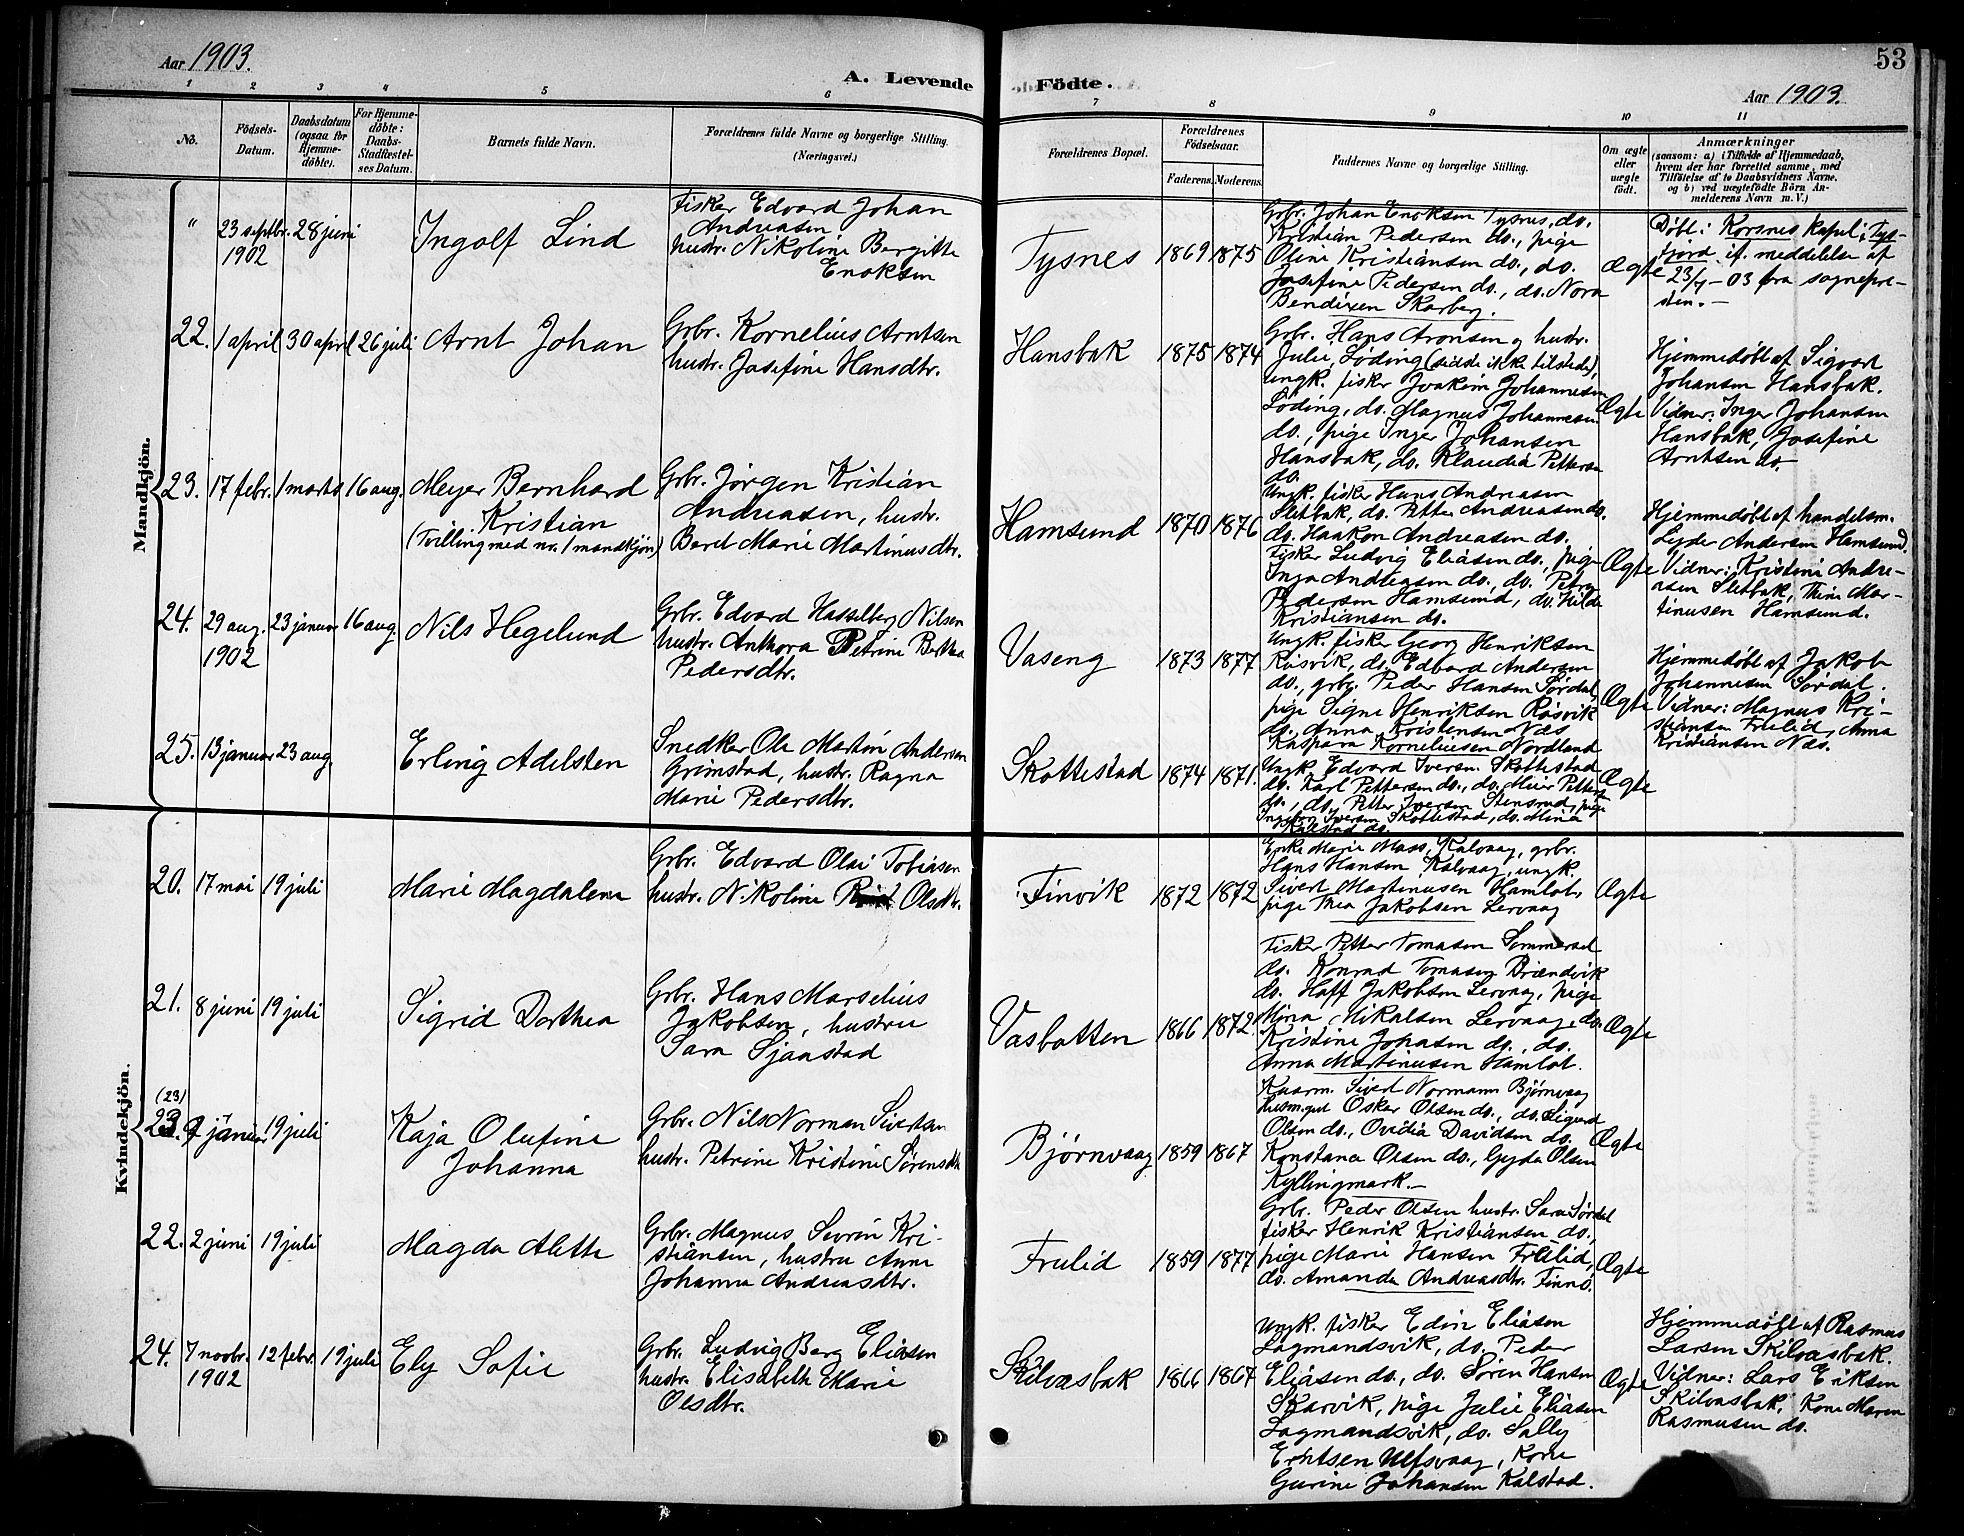 53
Aar 1903.
A. Levende Födte.
Aar 1903.
1 2 3 4 5 6 7 8 9 10 11
No.
Födsels-
Datum.
Daabsdatum
(ogsaa for
Hjemme-
döbte).
For Hjemme-
döbte:
Daabs-
Stadfestel-
ses Datum.
Barnets fulde Navn.
Forældrenes fulde Navne og borgerlige Stilling.
(Næringsvei.)
Forældrenes Bopæl.
Forældrenes
Födselsaar.
Faderens. Moderens.
Faddernes Navne og borgerlige Stilling.
Om ægte
eller
uægte
födt.
Anmærkninger
(saasom: a) i Tilfælde af Hjemmedaab,
hvem der har forrettet samme, med
Tilföielse af to Daabsvidners Navne,
og b) ved uægtefödte Börn An-
melderens Navn m. V.)
Mandkjön.
"
23 septbr.
1902
28 juni
Ingolf Lind
Fisker Edvard Johan
Andreasen,
hustr. Nikoline Bergitte
Enoksen
Tysnes
1869
1875
Grbr. Johan Enoksen Tysnes, do.
Kristian Pedersen do., pige
Oline Kristiansen do., do.
Josefine Pedersen do., do. Nora
Bendixen Skarberg.
Ægte
Døbt i Korsnes kapel i Tys-
fjord if. meddelelse af
23/7 - 03 fra sognepre-
sten. -
22.
1 april
30 april
26 juli
Arnt Johan
Grbr. Kornelius Arntsen
hustr. Josefine Hansdtr.
Hansbak
1875
1874
Grbr. Hans Aronsen og hustr.
Julie, Löding (sidste ikke tilstede),
ungk. fisker Joakim Johannesen
Löding, do. Magnus Johannesen
do., pige Inger Johansen
Hansbak, do. Klaudia Pettersen
do.
Ægte
Hjemmedøbt af Sigvart
Johansen Hansbak.
Vidner: Inger Johansen
Hansbak, Josefine
Arntsen do. -
23.
17 febr.
1 marts
16 aug.
Meyer Bernhard
Kristian
(Tvilling med nr. 1 mandkjøn)
Grbr. Jörgen Kristian
Andreasen, hustr.
Beret Marie Martinusdtr.
Hamsund
1870
1876
Ungk. fisker Hans Andreasen
Sletbak, do. Petter Andreasen do.
do. Haakon Andreasen do.
Fisker Ludvig Eliasen do., pige
Inga Andreasen do., do. Petra
Pedersen Hamsund, do. Hilda
Kristiansen do.
Ægte
Hjemmedøbt af handelsm.
Lyder Andersen Hamsund.
Vidner: Kristine Andre-
asen Sletbak, Thine Mar-
tinusen Hamsund.
24.
29 aug.
1902
23 januar
16 aug.
Nils Hegelund
Grbr. Edvard Hasselberg Nilsen
hustr. Anthora Petrine Bertha
Pedersdtr.
Vaseng
1873
1877
Ungk. fisker Georg Henriksen
Råsvik, do. Edvard Andersen
do., grbr. Peder Hansen Sørdal,
pige Signe Henriksen Råsvik
do. Anna Kristensen Næs
Ægte
Hjemmedøbt af Jakob
Johannesen Sørdal.
Vidner: Magnus Kri-
stiansen Frulid, Anna
Kristiansen Næs.
25.
13 januar
23 aug.
Erling Adelsten
Snedker Ole Martin Andersen
Grimstad, hustr. Ragna
Marie Pedersdtr.
Skottestad
1874
1871.
Kaspara Korneliusen Nordland
Ungk. Edvard Iversen Skottestad
do. Karl Pettersen do., do. Meier Pettersen
do., do. Petter Iversen Stensrud, pige
Ingeborg Iversen Skottestad, do. Mina
Kalstad do.
Ægte
Kvindekjön.
20.
17 mai
19 juli
Marie Magdalena
Grbr. Edvard Olai Tobiasen
hustr. Nikoline Olsdtr.
Finvik
1872
1872
Enke Marie Mass, Kalvaag, grbr.
Hans Hansen Kalvaag, ungk.
Sivert Martinusen Hamlot,
pige Thea Jakobsen Lervaag
Ægte
21.
8 juni
19 juli
Sigrid Dorthea
Grbr. Hans Marselius
Jakobsen, hustru
Sara Sjånstad
Vasbotten
1866
1872.
Fisker Petter Tomasen Sommersel
do. Konrad Tomasen Brændvik
do. Haff Jakobsen Lervaag, pige
Mina Mikalsen Lervaag, do.
Kristine Johasen do., do.
Anna Martinusen Hamlot.
Ægte
(23)
23.
7 januar
19 juli
Kaja Olufine
Johanna
Grbr. Nils Norman Sivertsen
hustr. Petrine Kristine Sørensdtr.
Bjørnvaag
1859
1867
Kaarm. Sivert Normann Bjørnvaag
husm.gut Oskar Olsen do., do. Sigurd
Olsen do., Ovidia Davidsen do.
Konstance Olsen do., Gyda Olsen
Kyllingmark. -
Ægte
22.
2 juni
19 juli
Magda Alette
Grbr. Magnus Severin Kri-
stiansen, hustru Anne
Johanna Andreasdtr.
Frulid
1859
1877
Grbr. Peder Olsen hustr. Sara Sørdal
fisker Henrik Kristiansen do.,
pige Marie Hansen Frulid,
do. Amanda Andreasdtr. Finnö.
Ægte
24.
7 novbr.
1902
12 febr.
19 juli
Ely Sofie
Grbr. Ludvig Berg Eliasen
hustr. Elisabeth Marie
Olsdtr.
Skilvasbak
1866
1867
Ungk. fisker Edin Eliasen
Lagmandsvik, do. Peder
Eliasen do., do. Søren Hansen
Skarvik, pige Julie Eliasen
Lagmandsvik, do. Sally
Eritsen Ulfsvaag, Kone
Gurine Johansen Kalstad.
Ægte
Hjemmedøbt af Rasmus
Larsen Skilvasbak.
Vidner: Lars Eriksen
Skilvasbak, Kone Maren
Rasmusen do.